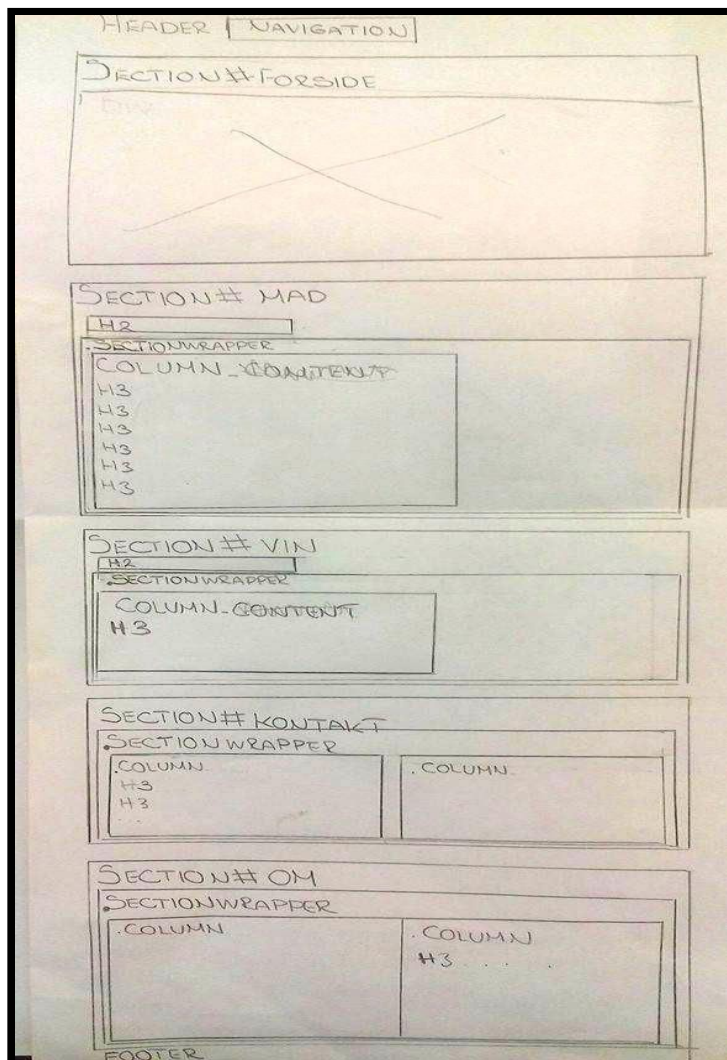 HEADER NAVIGATION
SECTION#FORSIDE
SECTION# MAD
H2
.SECTIONWRAPPER
COLUMN_CONTENT
H3
H3
H3
H3
H3
H3
SECTION# VIN
H2
.SECTIONWRAPPER
COLUMN_CONTENT
H3
SECTION# KONTAKT
.SECTIONWRAPPER
.COLUMN
H3
H3
...
.COLUMN
SECTION# OM
.SECTIONWRAPPER
.COLUMN
.COLUMN
H3 . . . .
FOOTER